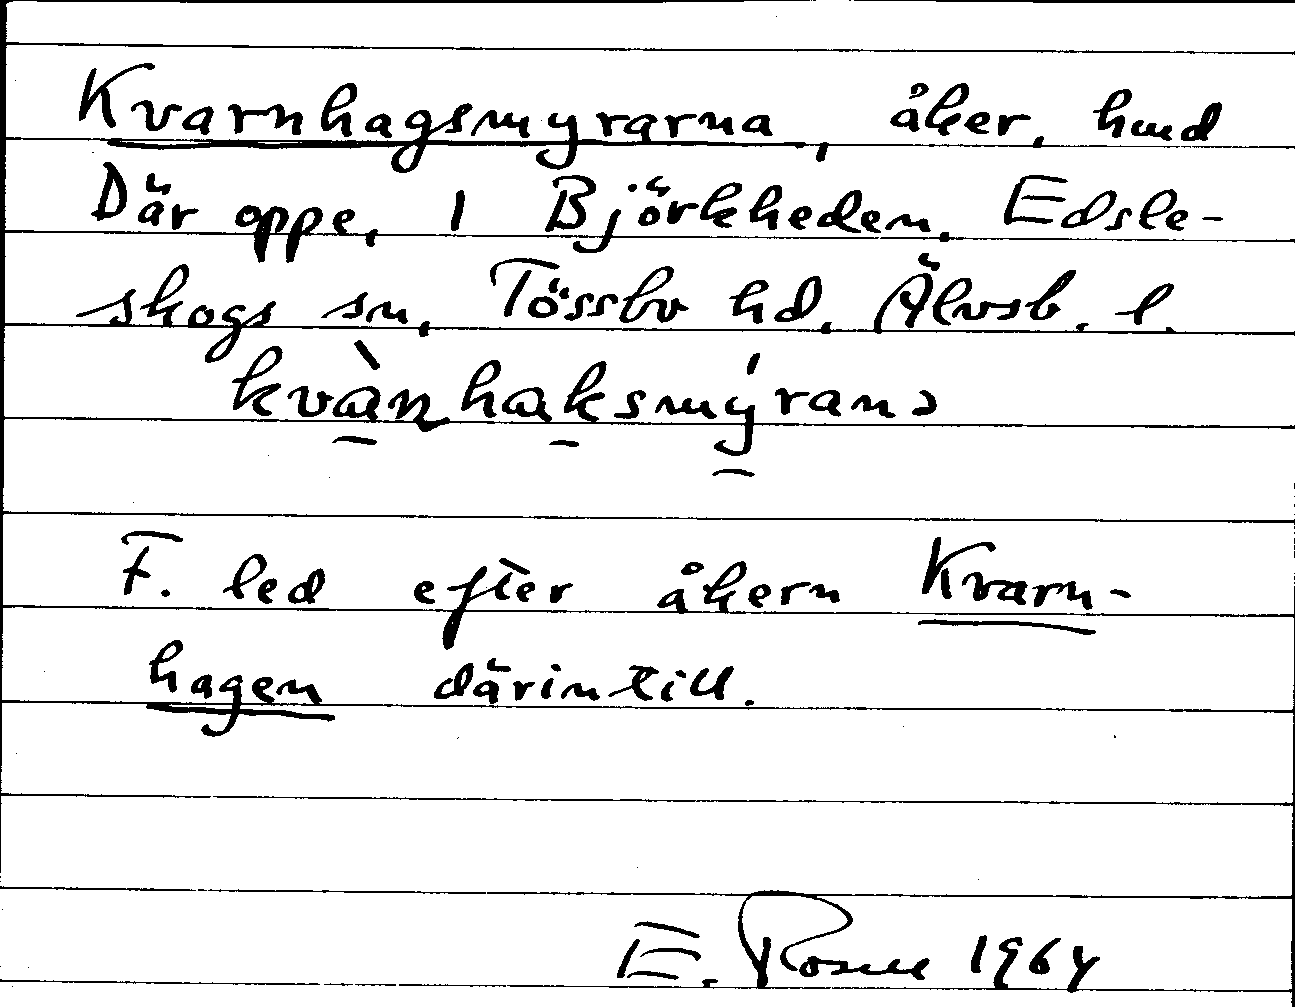 Kvarnhagsmyrarna, åker, hmd
Där oppe, 1 Björkheden, Edsle-
skogs sn, Tössbo hd, Älvsb. l.
kvànhaksmýranɔ
F. led efter åkern Kvarn-
hagen därintill.
E. 1964